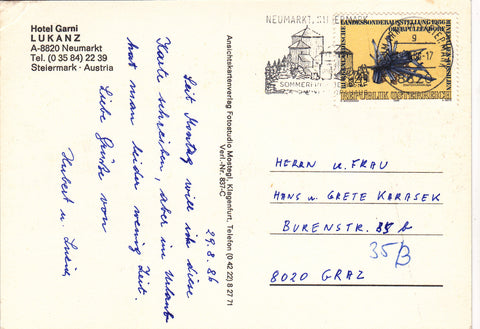 Hotel Garni
LUKANZ
A-8820 Neumarkt
Tel. (0 35 84) 22 39
Steiermark · Austria
29.8.86
Seit Montag will ich diese
Karte schreiben, aber im Urlaub
hat man leider wenig Zeit.
Liebe Grüße von
Hubert u.
Ansichtskartenverlag Fotostudio Mostegl, Klagenfurt, Telefon (0 42 22) 8 27 71
Verl.-Nr. 837-C
NEUMARKT, STEIERMARK
SOMMERFRISCHE
REPUBLIK ÖSTERREICH
HERRN u. FRAU
HANS u. GRETE KARASEK
BURENSTR.
35 B
8020 GRAZ